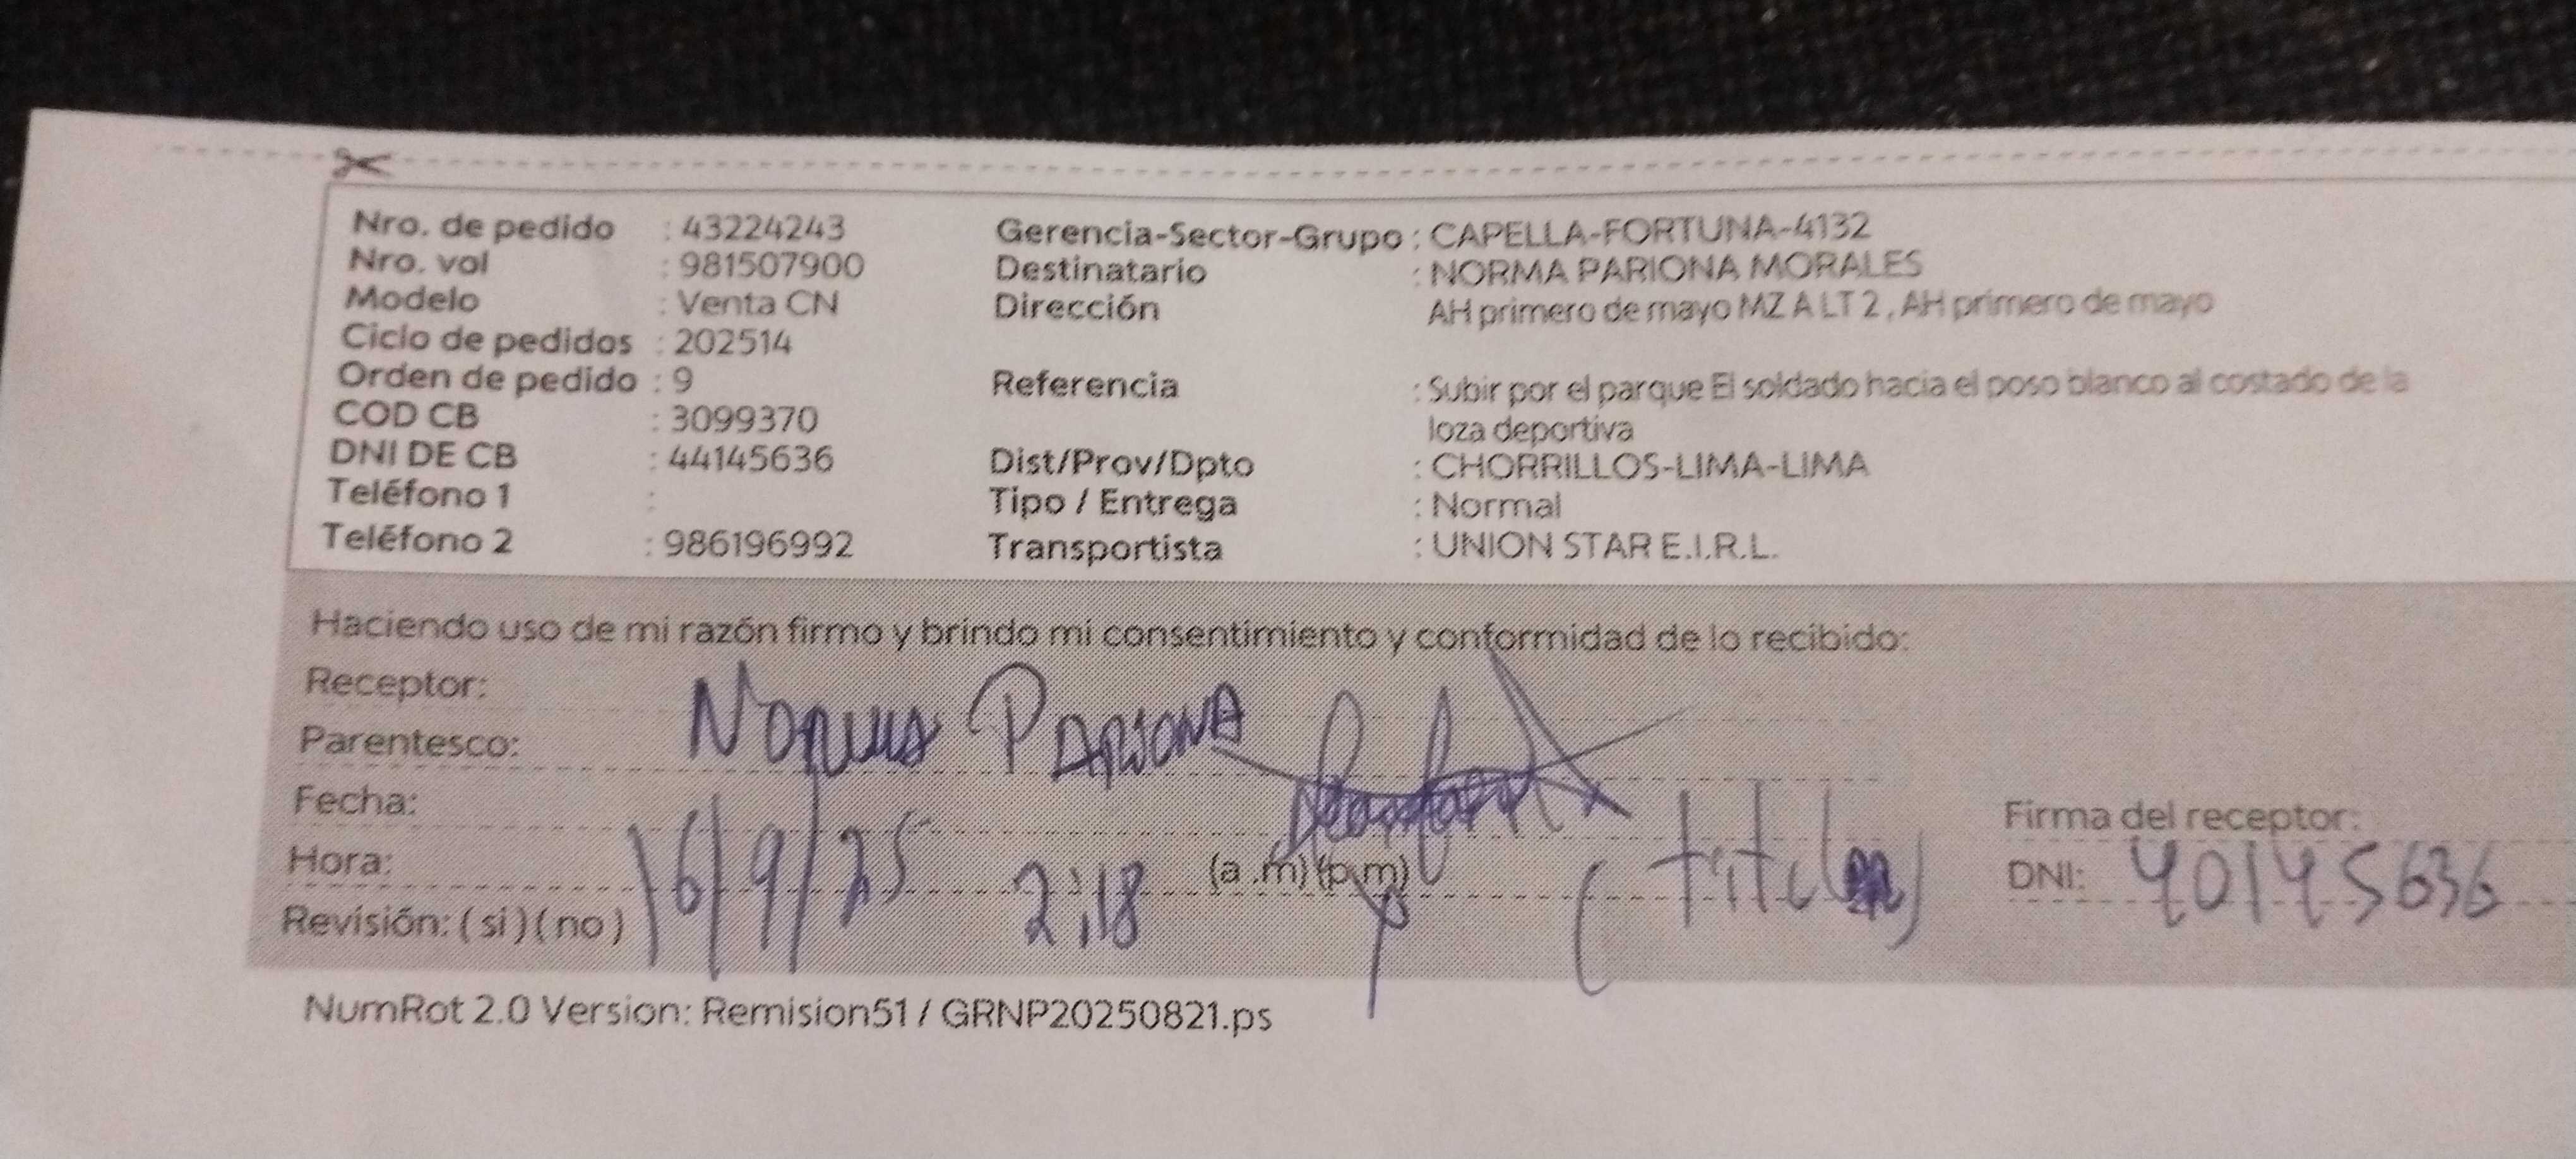 Nro. de pedido : 43224243 Gerencia-Sector-Grupo : CAPELLA-FORTUNA-4132
Nro. vol : 981507900 Destinatario : NORMA PARIONA MORALES
Modelo : Venta CN Dirección AH primero de mayo MZ A LT 2 , AH primero de mayo
Ciclo de pedidos : 202514
Orden de pedido : 9 Referencia : Subir por el parque El soldado hacia el poso blanco al costado de la
COD CB : 3099370 loza deportiva
DNI DE CB : 44145636 Dist/Prov/Dpto : CHORRILLOS-LIMA-LIMA
Teléfono 1 : Tipo / Entrega : Normal
Teléfono 2 : 986196992 Transportista : UNION STAR E.I.R.L.
Haciendo uso de mi razón firmo y brindo mi consentimiento y conformidad de lo recibido:
Receptor: Norma PARIONA
Parentesco:
Fecha: 16/9/25 Firma del receptor:
Hora: 2:18 (a .m) (p.m) (titular) DNI: 40145636
Revisión: ( si ) ( no )
NumRot 2.0 Version: Remision51 / GRNP20250821.ps